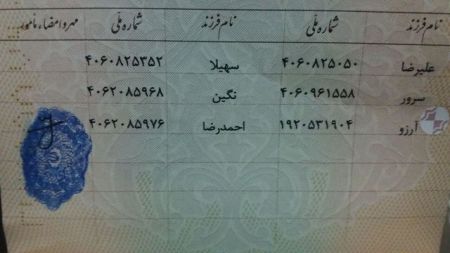 نام فرزند شماره ملّی نام فرزند شماره ملّی مهر و امضاء مأمور
علیرضا ۴۰۶۰۸۲۵۰۵۰ سهیلا ۴۰۶۰۸۲۵۳۵۲
سرور ۴۰۶۰۹۶۱۵۵۸ نگین ۴۰۶۲۰۸۵۹۶۸
آرزو ۱۹۲۰۵۳۱۹۰۴ احمدرضا ۴۰۶۲۰۸۵۹۷۶